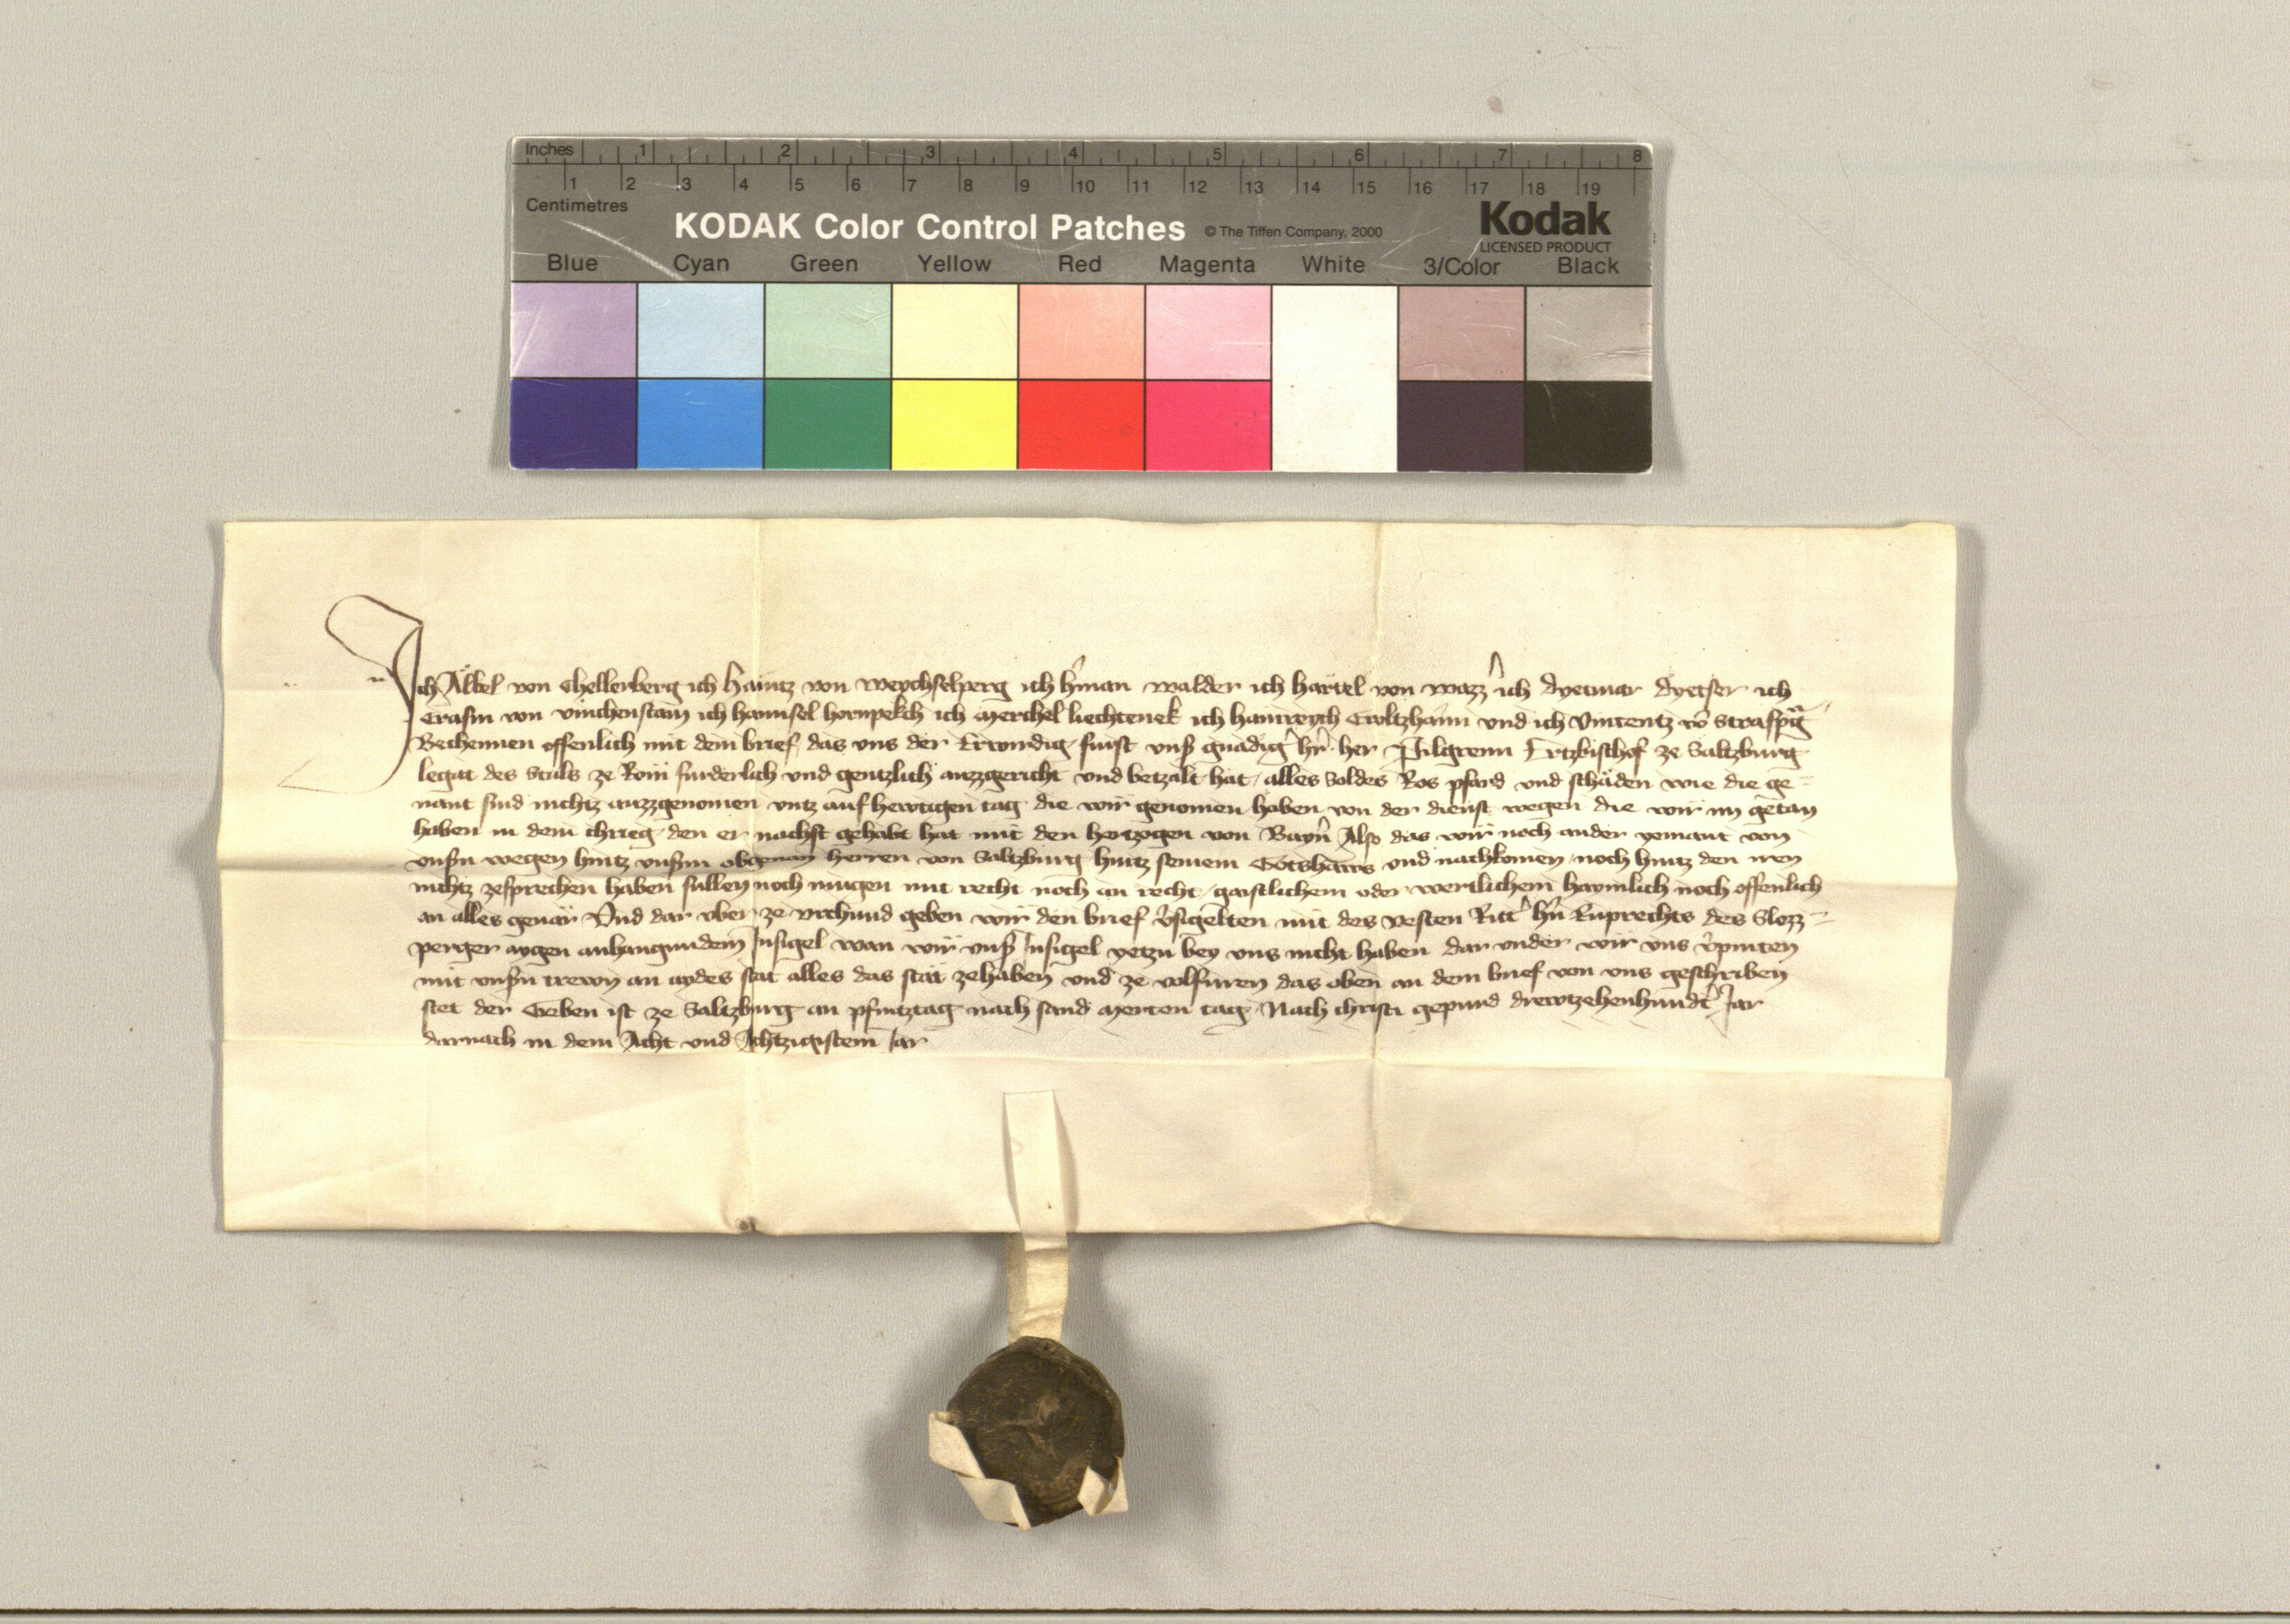 Inches 1 2 3 4 5 6 7 8
1 2 3 4 5 6 7 8 9 10 11 12 13 14 15 16 17 18 19
Centimetres
KODAK Color Control Patches © The Tiffen Company, 2000 Kodak
LICENSED PRODUCT
Blue Cyan Green Yellow Red Magenta White 3/Color Black
Ich Älbel von Chellenberg ich Haintz von Weychselperg ich h'man Walder ich Härtel von Wazz' ich Dyetmar Dyetser ich
Erasm von Vinchenstain ich Hannsel Hornpekch ich Merchel Liechtenek ich Hainreych Goltzhaim und ich Vincentz vo Straspg
Bechennen offenlich mit dem brief das vns der Erwirdig furst vns' gnadig h'r her Pilgreim Ertzbischof ze Saltzburg
legat des Stuls ze Rom furderlich vnd gentzlich auzzgericht vnd betzalt hat alles Soldes Ros pfard vnd schäden wie die ge=
nant sind nichtz auzzgenomen vntz auf hewtigen tag die wir genomen haben von der dienst wegen die wir im getan
haben in dem chrieg den er nachst gehabt hat mit den hertzogen von Bayrn Also das wir noch ander yemant von
vnsn wegen hintz vnsm obgenan herren von Saltzburg hintz seinem Gotshaws vnd nachkomen noch hintz den iren
nichtz zesprechen haben sullen noch mugen mit recht noch an recht gaistlichem oder wertlichem haymlich noch offenlich
an alles geuär Vnd dar vber ze vrchund geben wir den brief v'sigelten mit des vesten Ritt' h'n Ruprechts des Slozz=
perger aygen anhangundem Insigel wan wir vns' Insigel yetzu bey vns nicht haben dar vnder wir vns v'pinten
mit vnsn trewn an aydes stat alles das stät zehaben vnd ze volfuren das oben an dem brief von vns geschriben
stet der Geben ist ze Saltzburg an pfintztag nach sand Merten tag Nach christi gepurd drewtzehenhundt' Jar
darnach in dem Acht vnd Achtzigistem Jar